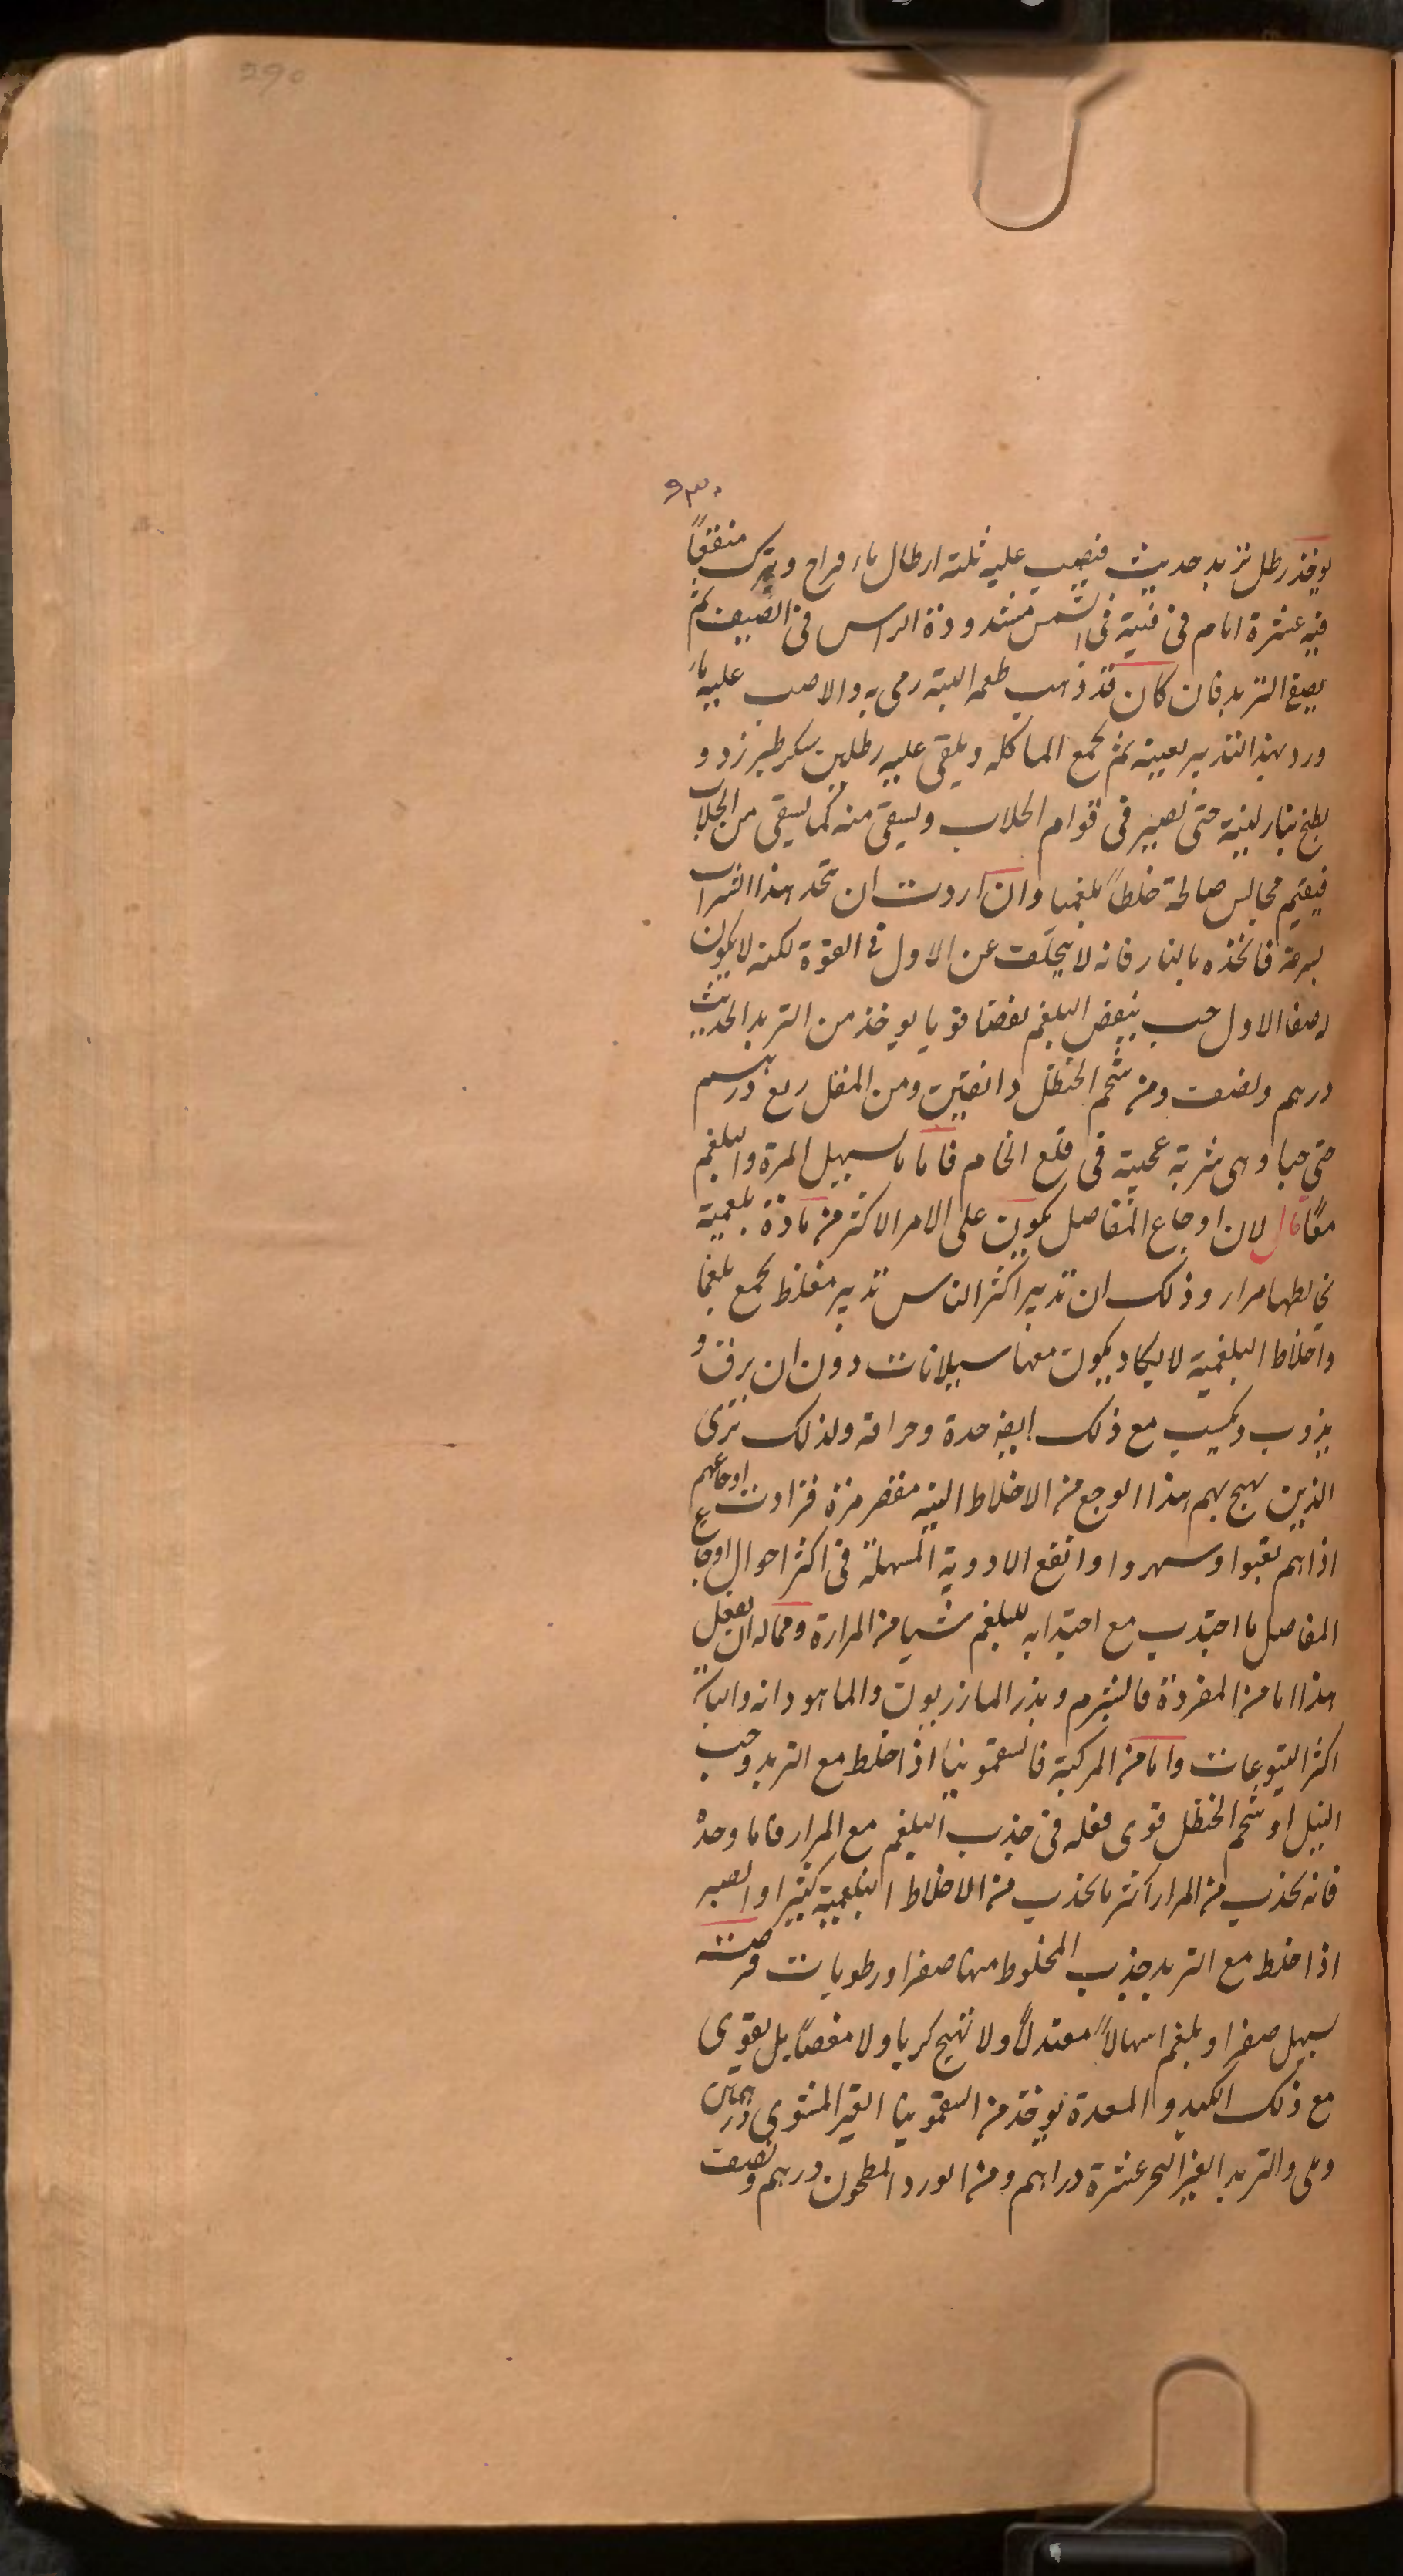 290
۹۳۰
يوخذ رطل تربد حديث فيصب عليه ثلثة ارطال ماء قراح ويترك منقعاً
فيه عشرة ايام فى قنية فى الشمس مشدودة الراس فى الصيف ثم
يصفى التربد فان كان قد ذهب طعمه البتة رمى به والا صب عليه ماء
ورد بهذا التدبير بعينه ثم يجمع الما كله ويلقى عليه رطلين سكر طبرزد و
يطبخ بنار لينة حتى تصير فى قوام الجلاب ويسقى منه كما يسقى من الجلاب
فيقيم مجالس صالحة خلطاً بلغميا وان اردت ان تتخذ هذا الشراب
بسرعة فاتخذه بالنار فانه لا يتخلف عن الاول فى القوة لكنه لا يكون
له صفا الاول حب ينفض البلغم نفضا قويا يوخذ من التربد الحديث
درهم ونصف ومن شحم الحنظل دانقين ومن المقل ربع درهم
حتى حبا وهى شربة عجيبة فى قلع الخام فاما ما يسهل المرة والبلغم
معًا قال لان اوجاع المفاصل يكون على الامر الاكثر من مادة بلغمية
يخالطها مرار وذلك ان تدبير اكثر الناس تدبير مغلظ يجمع بلغما
واخلاط البلغمية لا يكاد يكون معها سيلانات دون ان يرق و
يذوب ويكسب مع ذلك ايضا حدة وحرافة ولذلك نرى
الذين يهيج بهم هذا الوجع من الاخلاط النية مقصر مزة فزادت اوجاعهم
اذا هم تعبوا وسهروا وانفع الادوية المسهلة فى اكثر احوال اوجاع
المفاصل ما اجتذب مع اجتذابه للبلغم شيا من المرارة ومما له ان يفعل
هذا اما من المفردة فالشبرم وبزر المازريون والماهودانه والباقى
اكثر اليتوعات واما من المركبة فالسقمونيا اذا خلط مع التربد وحب
النيل او شحم الحنظل قوى فعله فى جذب البلغم مع المرار فاما وحده
فانه يجذب من المرار اكثر ما يجذب من الاخلاط البلغمية كثيرا والصبر
اذا خلط مع التربد جذب المخلوط منها صفرا ورطوبات قرصة
يسهل صفرا وبلغم اسهالاً معتدلاً ولا تهيج كربا ولا مغصًا بل يقوى
مع ذلك الكبد والمعدة يوخذ من السقمونيا الغير المشوى درهمان
وهى والتربد الغير البحر عشرة دراهم ومن الورد المطحون درهم ونصف